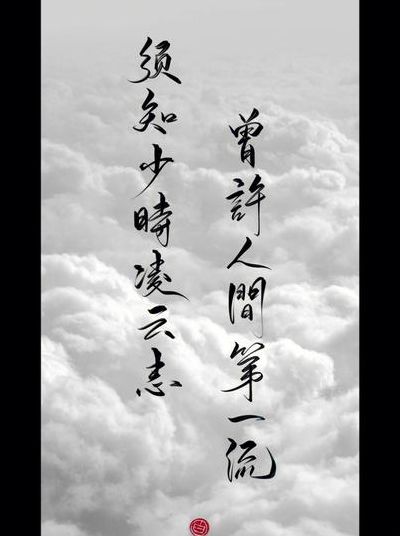 須知少時凌云志
曾許人間第一流